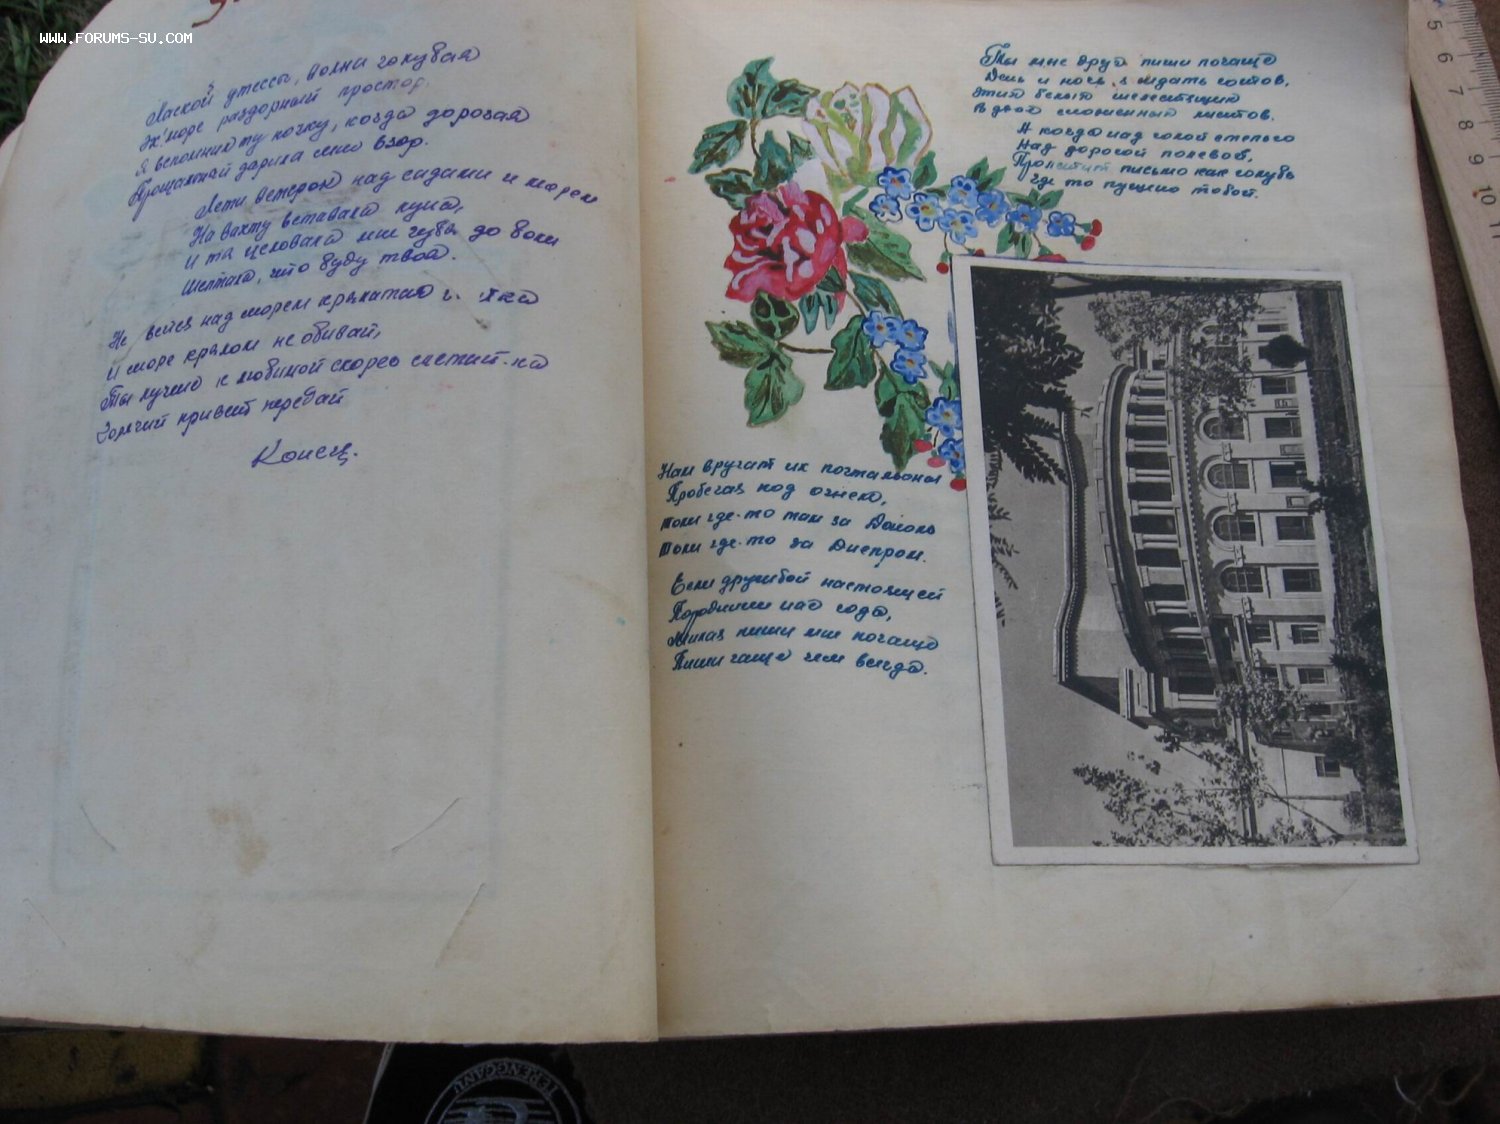 WWW.FORUMS-SU.COM
Лаской утессы, волна голубая
Эх! море раздорный простор.
Я вспомнил ту ночку, когда дорогая
Прощальный дарила мне взор.
Лети ветерок над садами и морем
На вахту вставала луна,
И та целовала мне губы до боли
Шептала, что буду твоя.
Не вейся над морем крылатая
и море крылом не обивай,
Ты лучше к любимой скорее слетай-ка
Горячий привет передай
Конец.
Ты мне друг пиши почаще
День и ночь я ждать готов,
Этих белых шелестящих
В двое сложенных листов.
А когда над голой степью
Над дорогой полевой,
Пролетит письмо как голубь
Где то пущено тобой.
Нам вручат их почтальоны
Пробегая под огнем,
Толи где-то там за Доном
Толи где-то за Днепром.
Если дружбой настоящей
Породнили нас года,
пиши мне почаще
Пиши чаще чем всегда.
5
6
7
8
9
10
11
TERENGGANU